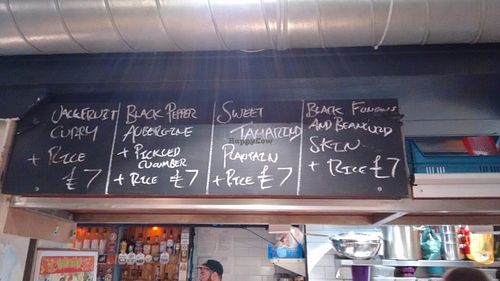 JACKFRUIT
CURRY
+ RICE
£7
BLACK PEPPER
AUBERGINE
+ PICKLED
CUCUMBER
+ RICE £7
SWEET
TAMARIND
PLANTAIN
+ RICE £7
BLACK FUNGUS
AND BEANCURD
SKIN
+ RICE £7
HappyCow